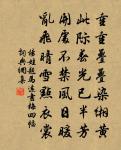 重重疊疊染緗黃
此際春光已半芳
開處不禁風日暖
亂飛晴雪點衣裳
楊娃題馬遠畫梅四幅
詞典網集